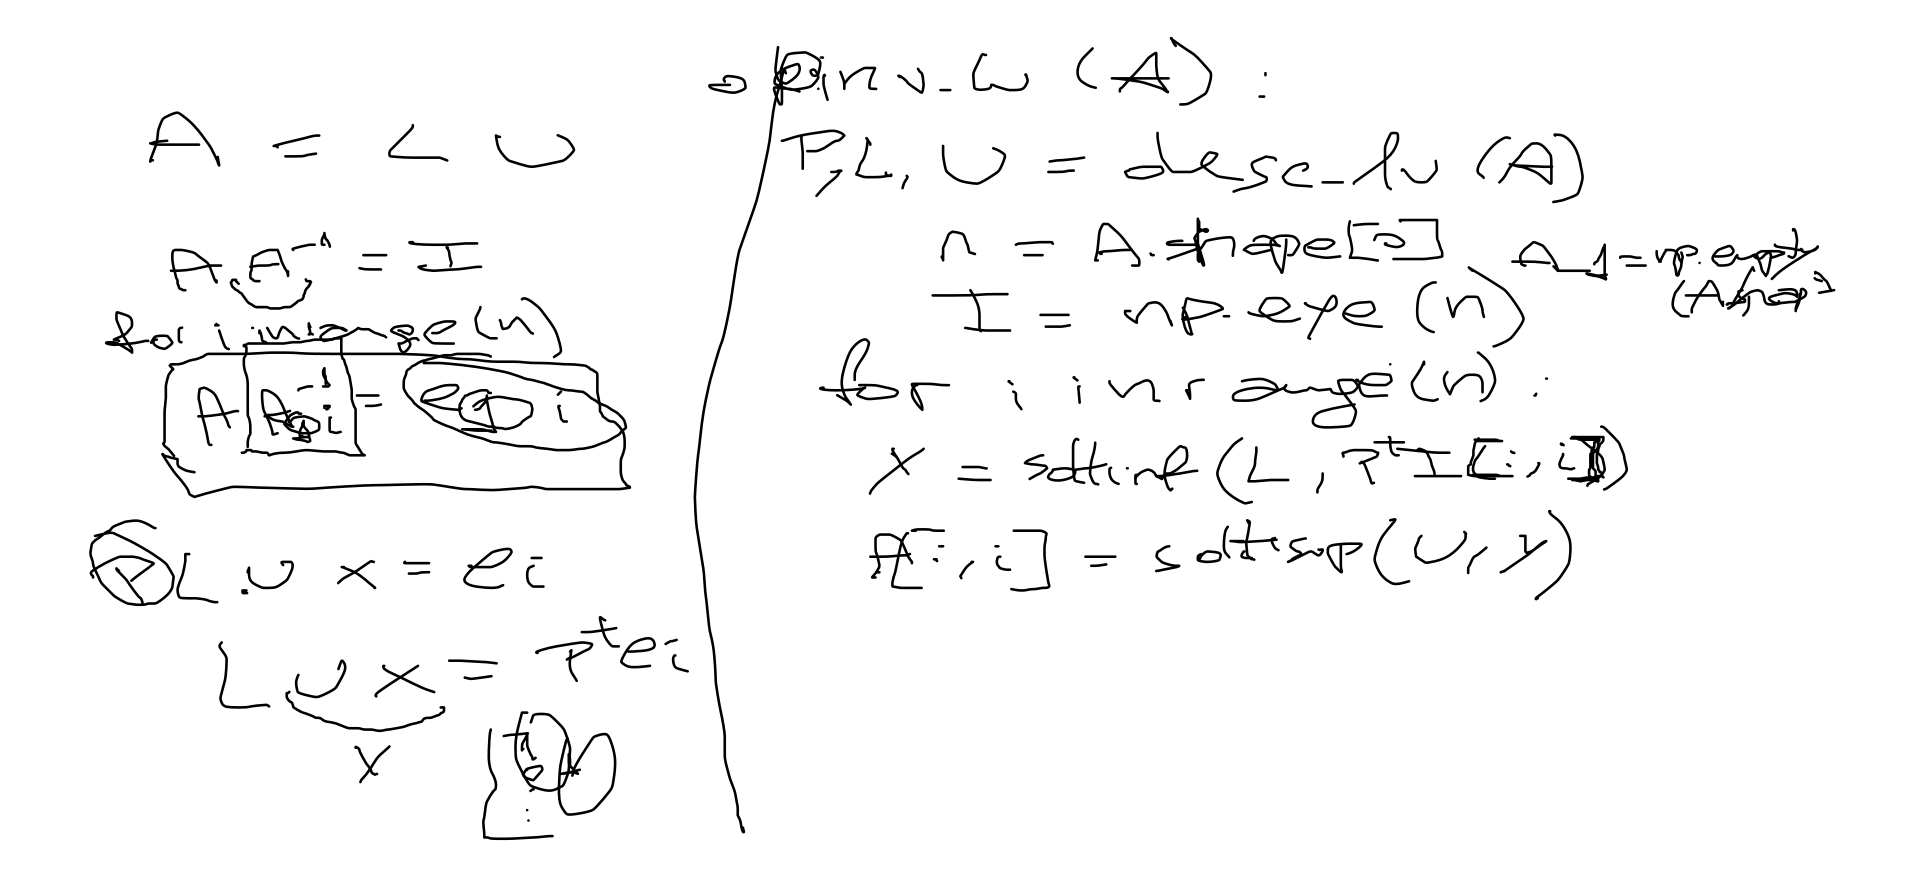 A = L U
A A⁻¹ = I
for i in range(n)
A A⁻¹:i = e i
P L U x = ei
L U x = Pᵗei
y
inv_lu (A) :
P, L, U = desc_lu (A)
n = A.shape[0]
A_1 = np.empty
I = np.eye (n)
for i in range(n) :
y = soltinf (L, Pᵗ I[:, i])
A[:, i] = soltsup(U, y)